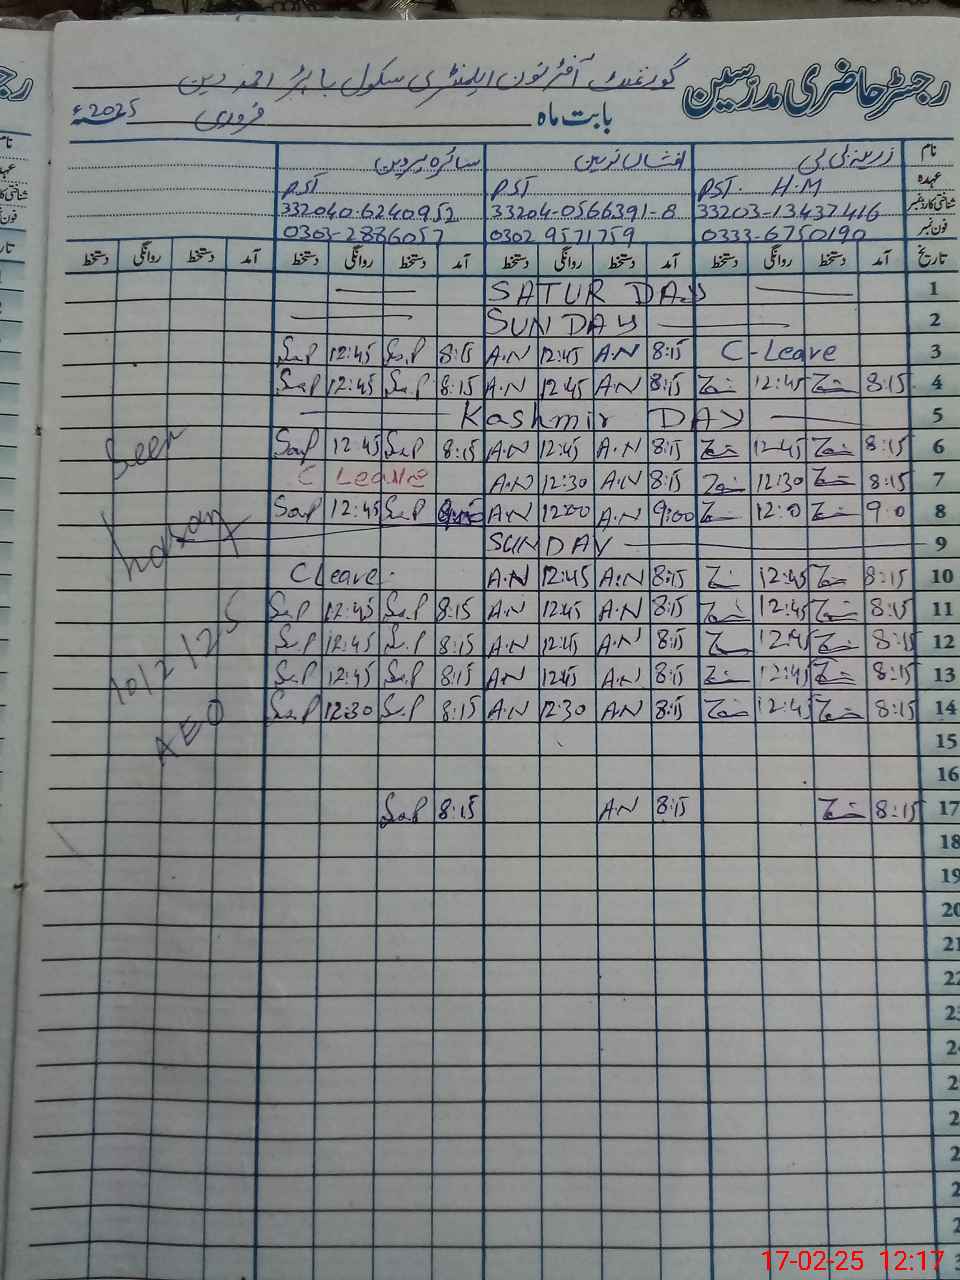 رجسٹر حاضری مدرسین
گورنمنٹ آفٹر نون ایلیمنٹری سکول احمد دین
بابت ماہ فروری 2025ء
نام زرینہ بی بی افشاں نورین سائرہ پروین
عہدہ PST. H.M PST PST
شناختی کارڈ نمبر 33203-13437416 33204-0566391-8 332040-6240952
فون نمبر 0333-6750190 0302 9571759 0303-2886057
تاریخ آمد دستخط روانگی دستخط آمد دستخط روانگی دستخط آمد دستخط روانگی دستخط آمد دستخط روانگی دستخط
SATUR DAY 1
SUNDAY 2
12:45 8:15 A.N 12:45 A.N 8:15 C-Leave 3
12:45 8:15 A.N 12:45 A.N 8:15 12:45 8:15 4
Kashmir DAY 5
12:45 8:15 A.N 12:45 A.N 8:15 12:45 8:15 6
C Leave A.N 12:30 A.N 8:15 12:30 8:15 7
12:45 A.N 12:00 A.N 9:00 12:0 9:0 8
SUNDAY 9
C Leave A.N 12:45 A.N 8:15 12:45 8:15 10
12:45 8:15 A.N 12:45 A.N 8:15 12:45 8:15 11
12:45 8:15 A.N 12:45 A.N 8:15 12:45 8:15 12
12:45 8:15 A.N 12:45 A.N 8:15 12:45 8:15 13
12:30 8:15 A.N 12:30 A.N 8:15 12:45 8:15 14
15
16
8:15 A.N 8:15 8:15 17
18
19
20
21
22
Seen
10/2/25
AEO
17-02-25 12:17